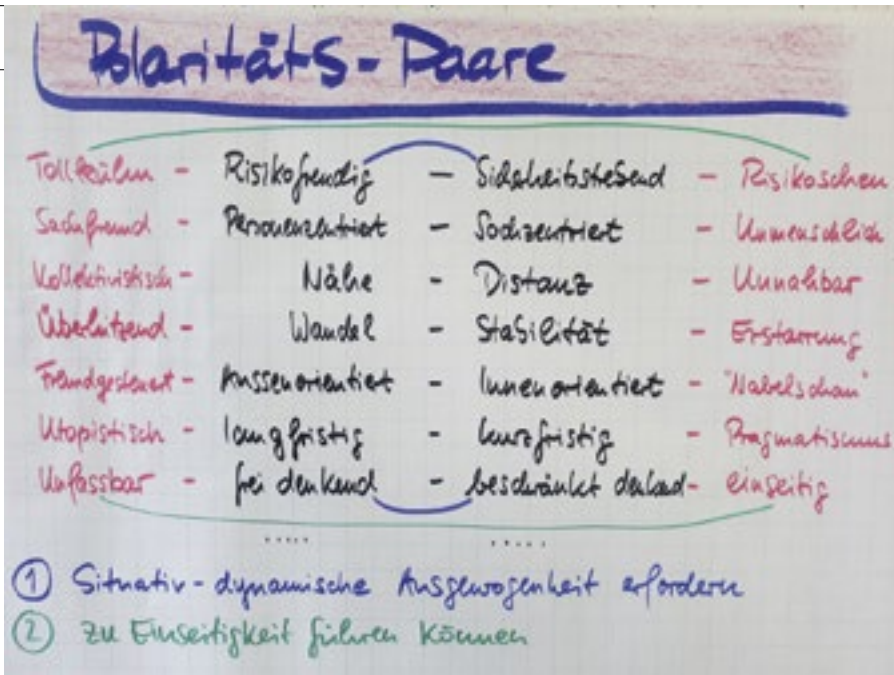 Polaritäts-Paare
Tollkühn - Risikofreudig - Sicherheitsstrebend - Risikoscheu
Sachfremd - Personenzentriert - Sachzentriert - Unmenschlich
Kollektivistisch - Nähe - Distanz - Unnahbar
Überhitzend - Wandel - Stabilität - Erstarrung
Fremdgesteuert - Aussenorientiert - Innenorientiert - "Nabelschau"
Utopistisch - langfristig - kurzfristig - Pragmatismus
Unfassbar - frei denkend - beschränkt denkend - einseitig
..... .....
① Situativ-dynamische Ausgewogenheit erfordern
② zu Einseitigkeit führen können